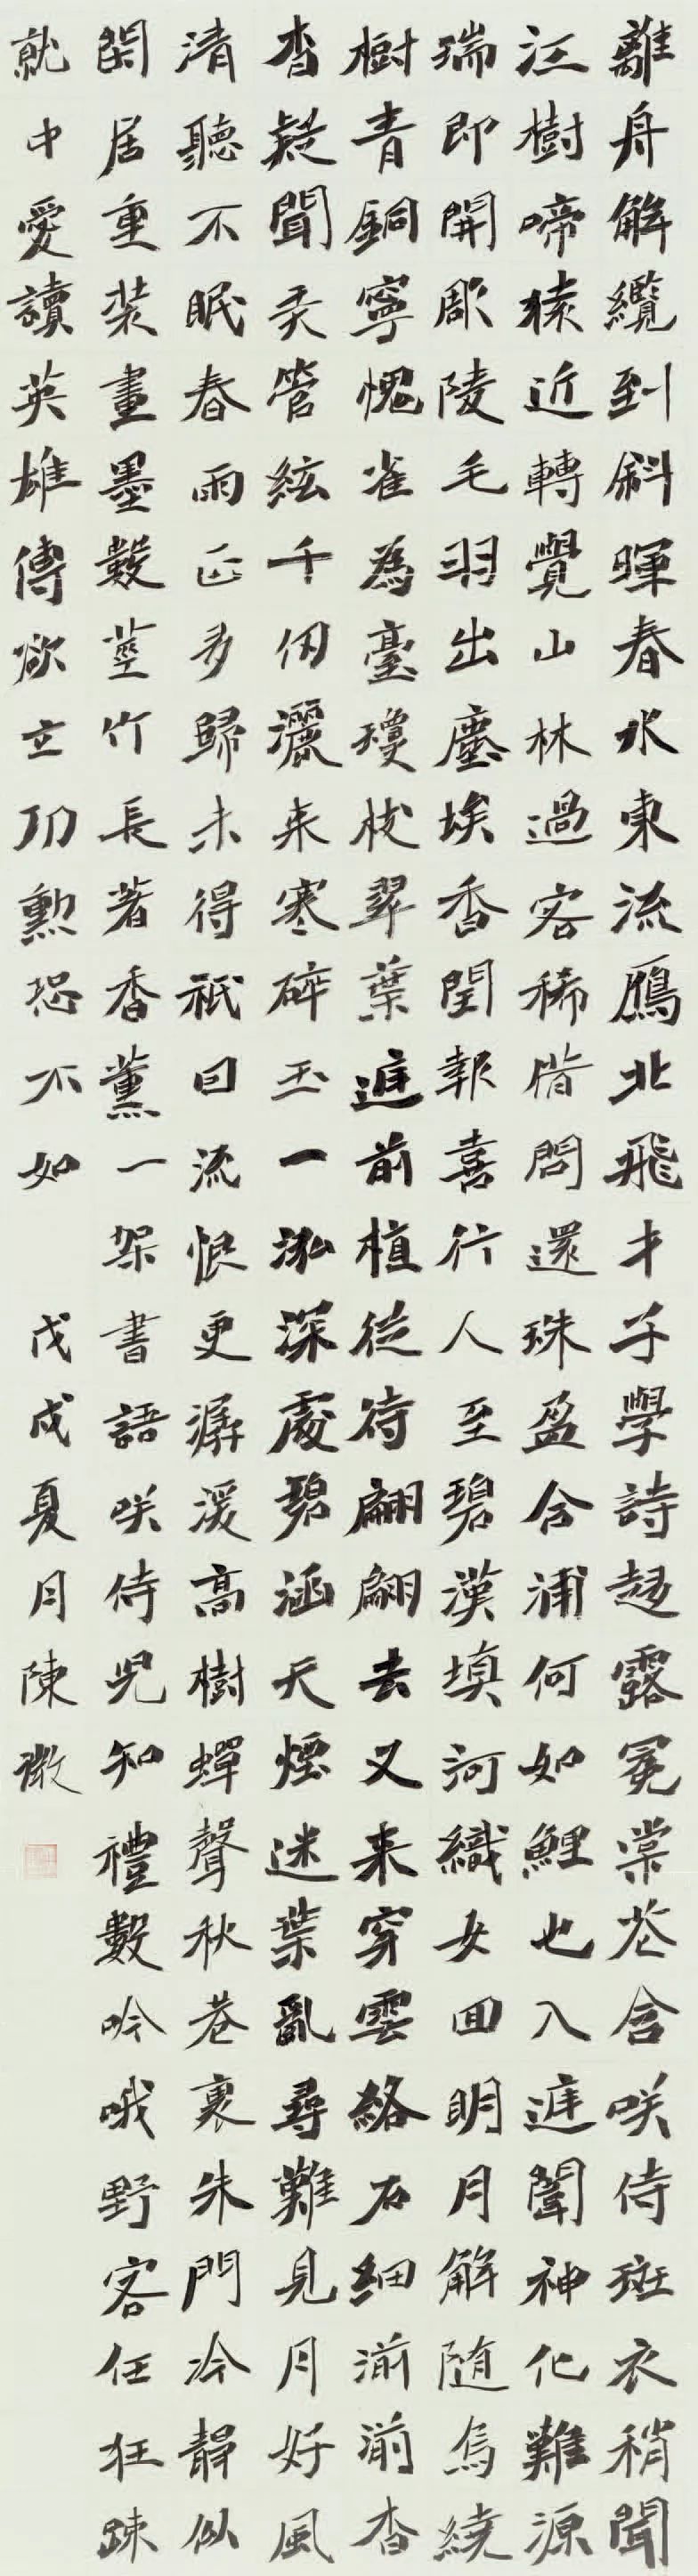 離舟解纜到斜暉春水東流鴈北飛才子學詩趍露冕棠花含咲侍斑衣稍聞
江樹啼猿近轉覺山林過客稀借問還珠盈合浦何如鯉也入庭聞神化難源
瑞即開彫陵毛羽出塵埃香閨報喜行人至碧漢填河織女回明月解随烏繞
樹青銅寧愧雀為臺瓊枝翠葉庭前植從待翩翩去又来穿雲絡石細湔湔杳
杳疑聞弄管絃千仞灑来寒碎玉一泓深處碧涵天煙迷葉亂尋難見月好風
清聽不眠春雨正多歸未得祇因流恨更潺湲高樹蟬聲秋巷裏朱門冷靜似
閑居重裝畫墨數莖竹長著香薰一架書語咲侍児知禮數吟哦野客任狂踈
就中愛讀英雄傳欲立功勲恐不如 戊戌夏月陳